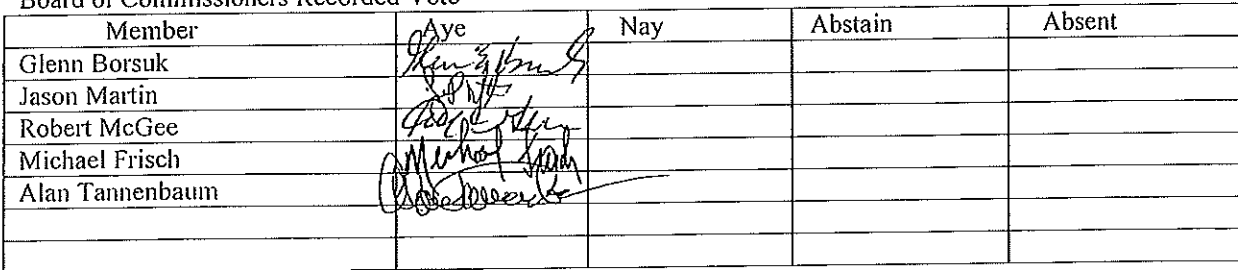 Board of Commissioners Recorded Vote
Member Aye Nay Abstain Absent
Glenn Borsuk
Jason Martin
Robert McGee
Michael Frisch
Alan Tannenbaum